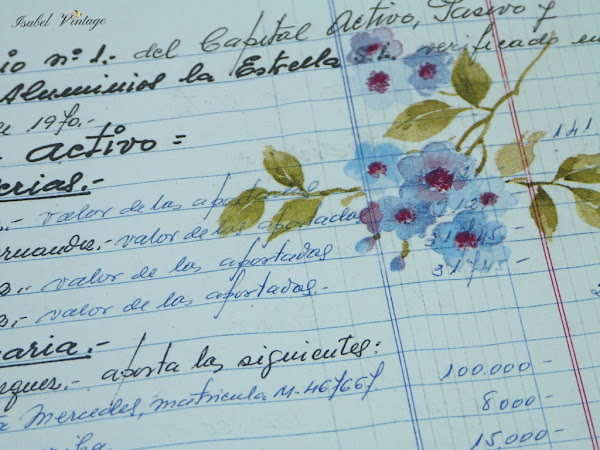 Isabel Vintage
io nº 1.- del Capital Activo, Pasivo y
Aluminios la Estrella S.L. verificado en
de 1970.-
- activo =
141
erias.-
.- valor de las aportadas
ernandez.- valor de las aportadas
.- valor de las aportadas 31.745 -
s.- valor de las aportadas.- 31.745 -
aria.-
rquez.- aporta las siguientes:
Mercedes, matricula M-467667 100.000 -
8000 -
15.000 -